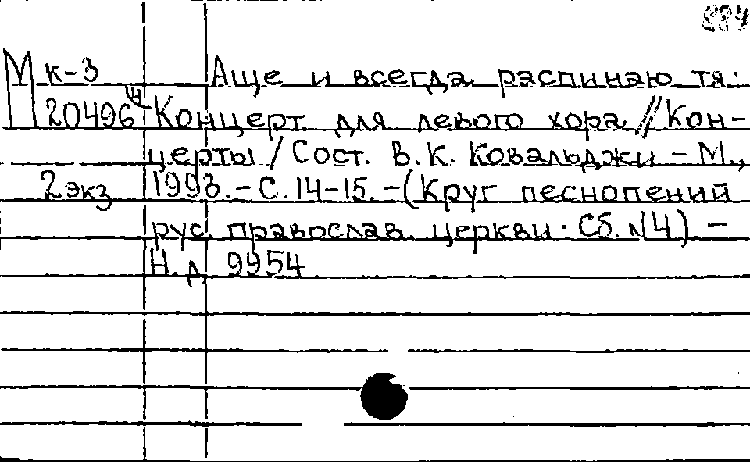 884
М к-3 Аще и всегда распинаю тя:
20496 Концерт для левого хора // Кон-
церты / Сост. В. К. Ковальджи - М.,
2 экз 1993. - С. 14-15. - (Круг песнопений
рус. православ. церкви. Сб. №4) -
Н. д. 9954